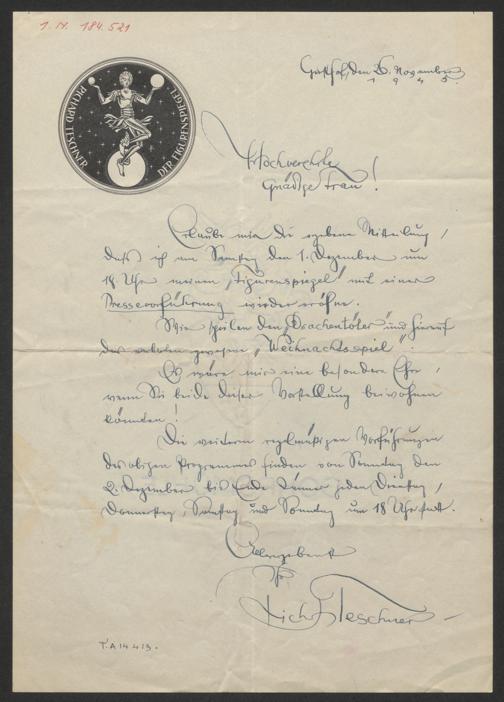 I.N. 184.521
RICHARD TESCHNER
DER FIGURENSPIEGEL
Gersthof, den 26. November
1945.
Hochverehrte
Gnädige Frau!
Erlaube mir die ergebene Mitteilung,
daß ich am Samstag den 1. Dezember um
18 Uhr meinen „Figurenspiegel" mit einer
Pressevorführung wieder eröffne.
Wir spielen den „Drachentöter" und hierauf
das gewesene „Weihnachtsspiel".
Es wäre mir eine besondere Ehre,
wenn Sie beide dieser Vorstellung beiwohnen
könnten!
Die weiteren regelmäßigen Vorführungen
des obigen Programmes finden von Sonntag den
2. Dezember bis Ende Jänner jeden Dienstag,
Donnerstag, Samstag und Sonntag um 18 Uhr statt.
Ihr
Rich. Teschner
T.A 14 413.